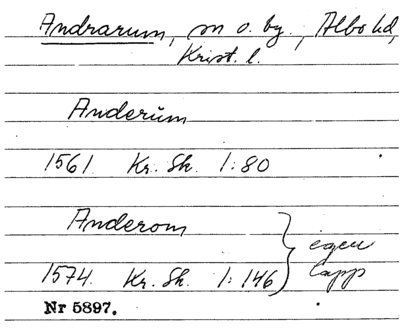 Andrarum, sn o. by., Albo hd,
Krist. l.
Anderŭm
1561. Kr. Sk. 1:80
Anderom
1574. Kr. Sk. 1:146
egen
Capp
Nr 5897.